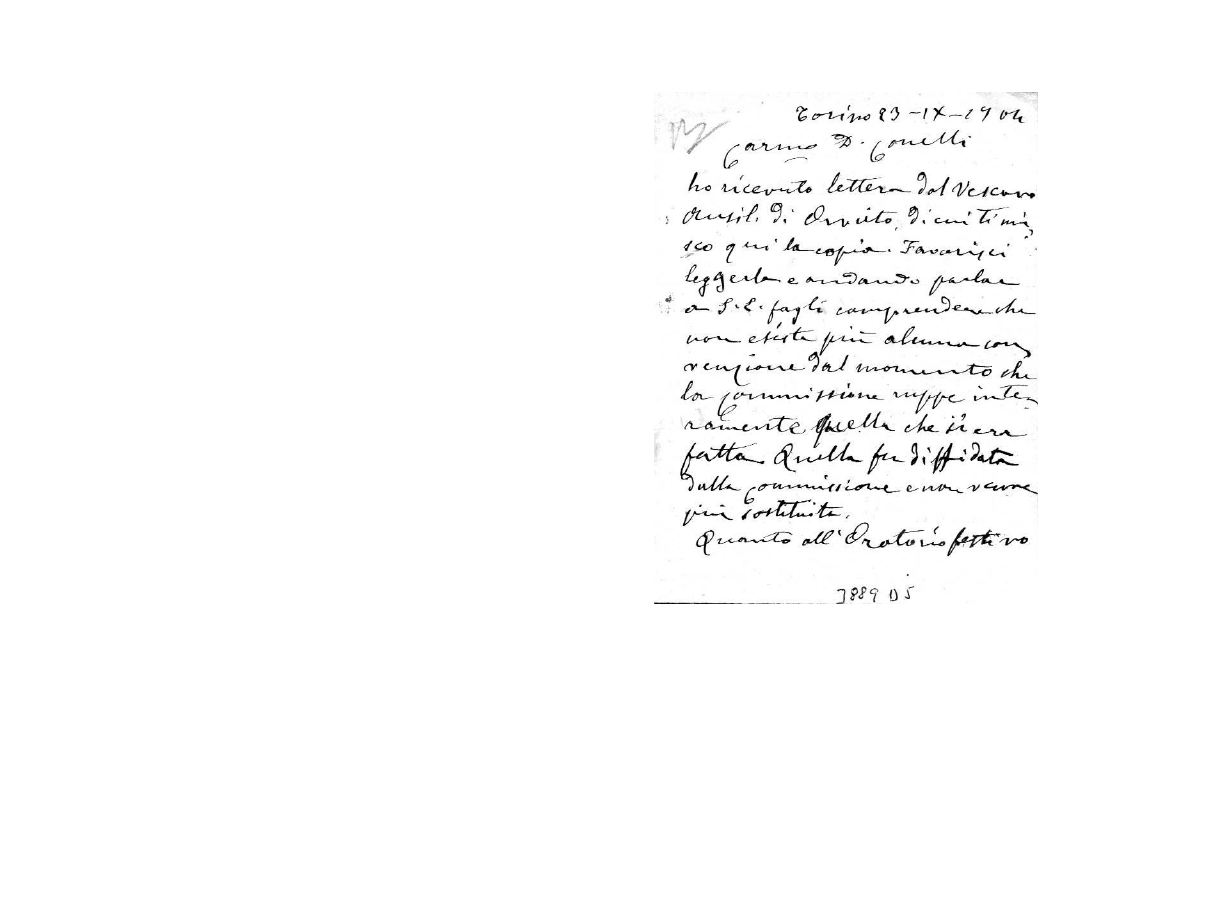 Torino 23-IX-1904
Carmo D. Conelli
ho ricevuto lettera dal Vescovo
Ausil. di Orvieto, di cui ti uni
sco qui la copia. Favorisci
leggerla e andando parlar
a S. E. fagli comprendere che
non esiste più alcuna con
venzione dal momento che
la Commissione ruppe inte
ramente quella che si era
fatta. Quella fu diffidata
dalla Commissione e non venne
più sostituita.
Quanto all'Oratorio festivo
3889 D5